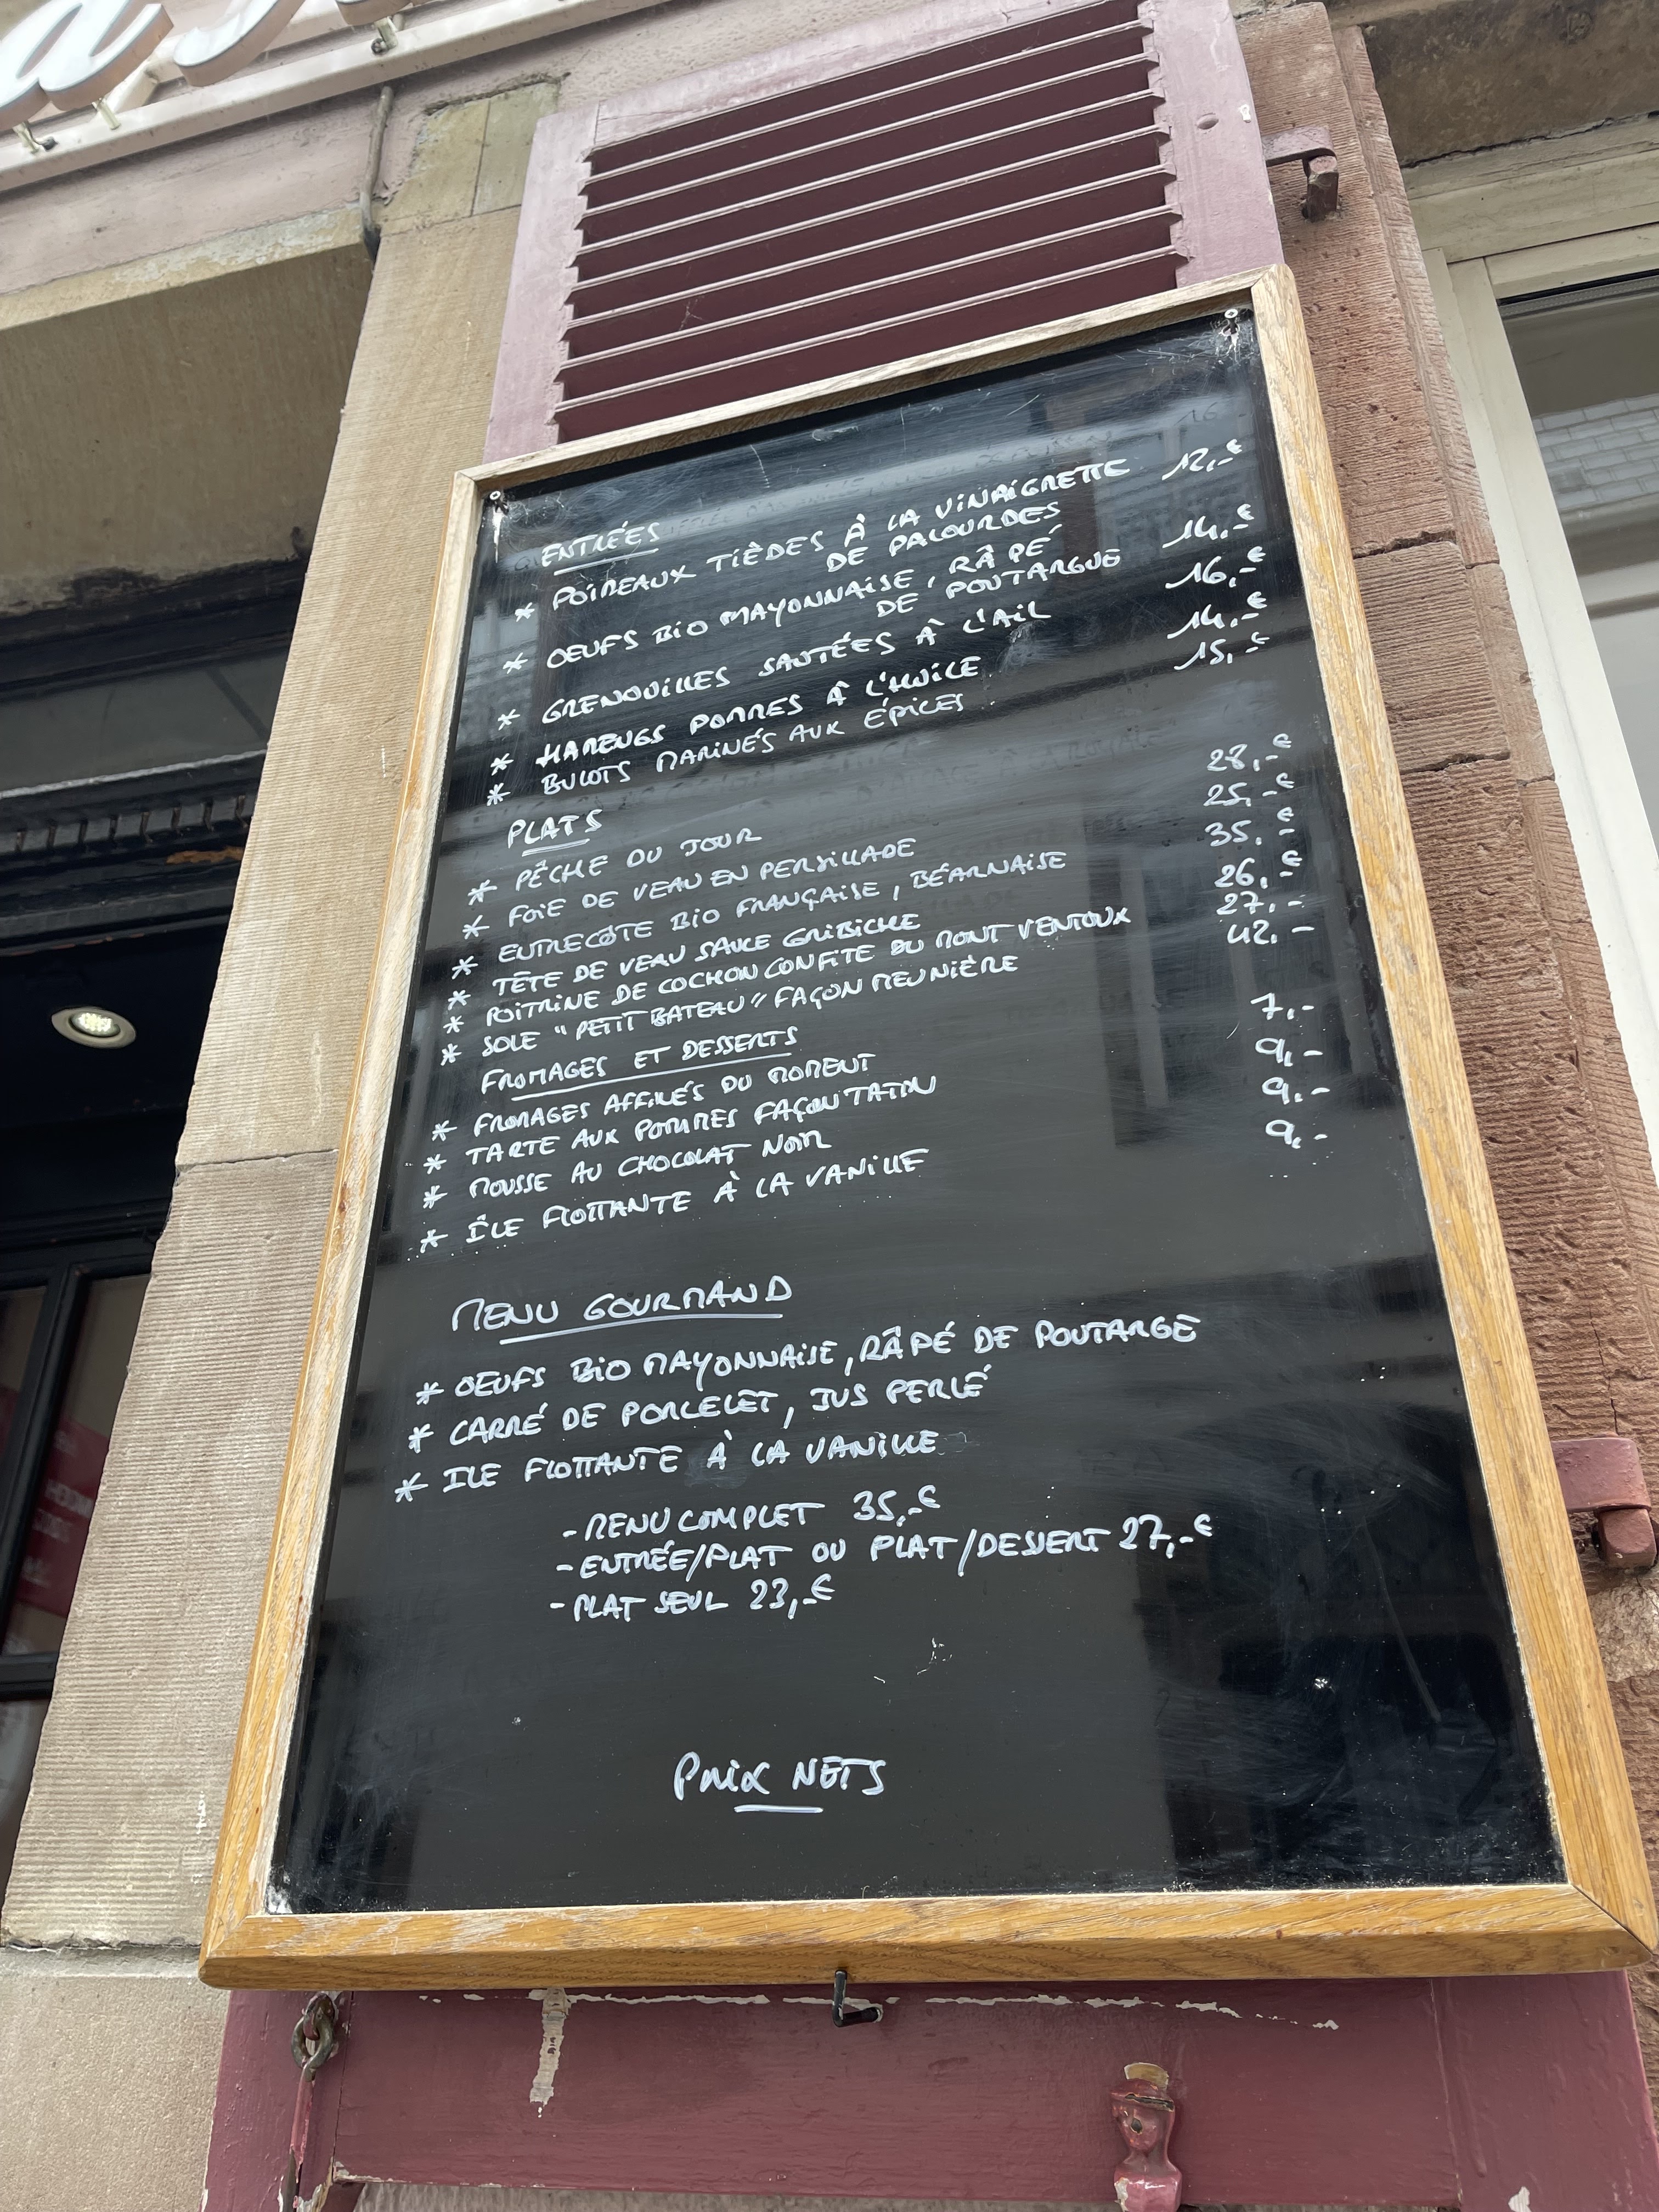 ENTRÉES
* POIREAUX TIÈDES À LA VINAIGRETTE 12,-€
DE PALOURDES
* OEUFS BIO MAYONNAISE, RÂPÉ 14,-€
DE POUTARGUE
* GRENOUILLES SAUTÉES À L'AIL 16,-€
* HARENGS POMMES À L'HUILE 14,-€
* BULOTS MARINÉS AUX ÉPICES 15,-€
PLATS
* PÊCHE DU JOUR 28,-€
* FOIE DE VEAU EN PERSILLADE 25,-€
* ENTRECÔTE BIO FRANÇAISE, BÉARNAISE 35,-€
* TÊTE DE VEAU SAUCE GRIBICHE 26,-€
* POITRINE DE COCHON CONFITE DU MONT VENTOUX 27,-
* SOLE "PETIT BATEAU" FAÇON MEUNIÈRE 42,-
FROMAGES ET DESSERTS
* FROMAGES AFFINÉS DU MOMENT 7,-
* TARTE AUX POMMES FAÇON TATIN 9,-
* MOUSSE AU CHOCOLAT NOIR 9,-
* ÎLE FLOTTANTE À LA VANILLE 9,-
MENU GOURMAND
* OEUFS BIO MAYONNAISE, RÂPÉ DE POUTARGE
* CARRÉ DE PORCELET, JUS PERLÉ
* ILE FLOTTANTE À LA VANILLE
- MENU COMPLET 35,-€
- ENTRÉE/PLAT OU PLAT/DESSERT 27,-€
- PLAT SEUL 23,-€
PRIX NETS